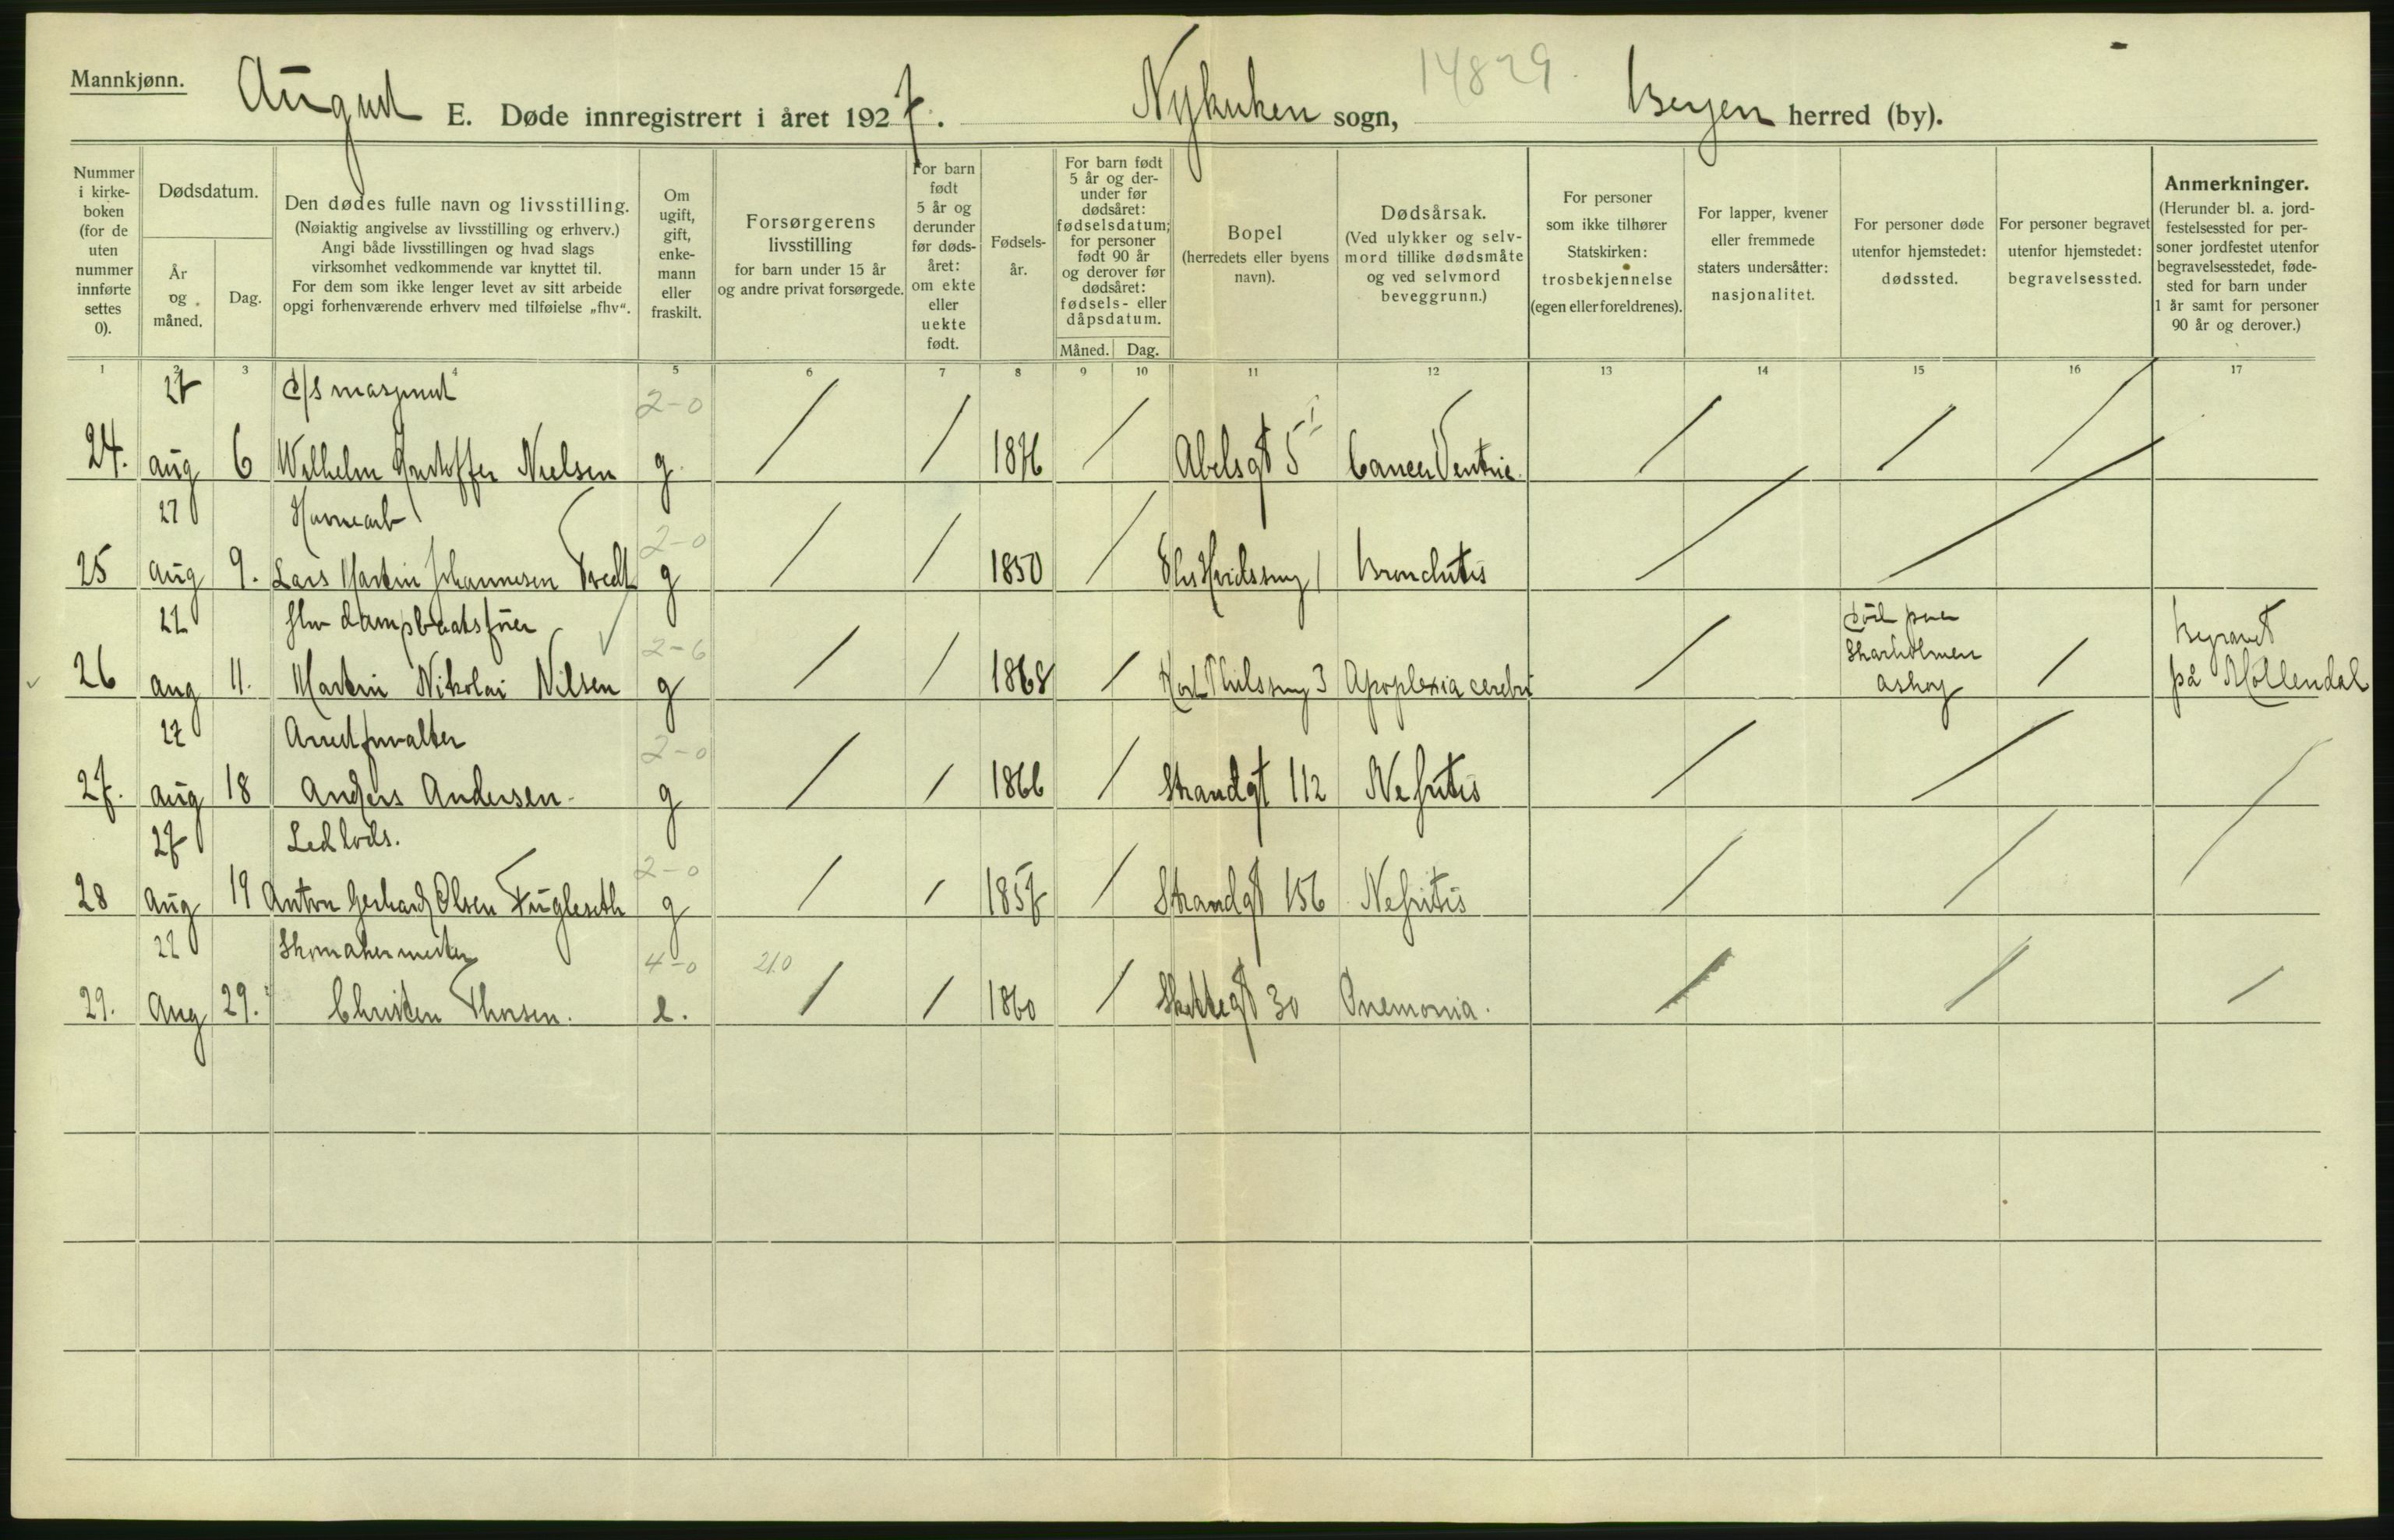 Mannkjønn.
August E. Døde innregistrert i året 1927. Nykirken sogn, 14829. Bergen herred (by).
Nummer i kirke-boken (for de uten nummer innførte settes 0).
Dødsdatum.
År og måned.
Dag.
Den dødes fulle navn og livsstilling.
(Nøiaktig angivelse av livsstilling og erhverv.)
Angi både livsstillingen og hvad slags
virksomhet vedkommende var knyttet til.
For dem som ikke lenger levet av sitt arbeide
opgi forhenværende erhverv med tilføielse „fhv“.
Om ugift, gift, enke-mann eller fraskilt.
Forsørgerens livsstilling
for barn under 15 år
og andre privat forsørgede.
For barn født 5 år og derunder før døds-året: om ekte eller uekte født.
Fødsels-år.
For barn født 5 år og der-under før dødsåret: fødselsdatum; for personer født 90 år og derover før dødsåret: fødsels- eller dåpsdatum.
Måned. Dag.
Bopel
(herredets eller byens navn).
Dødsårsak.
(Ved ulykker og selv-mord tillike dødsmåte og ved selvmord beveggrunn.)
For personer som ikke tilhører Statskirken: trosbekjennelse (egen eller foreldrenes).
For lapper, kvener eller fremmede staters undersåtter: nasjonalitet.
For personer døde utenfor hjemstedet: dødssted.
For personer begravet utenfor hjemstedet: begravelsessted.
Anmerkninger.
(Herunder bl. a. jord-festelsessted for per-soner jordfestet utenfor begravelsesstedet, føde-sted for barn under 1 år samt for personer 90 år og derover.)
1 2 3 4 5 6 7 8 9 10 11 12 13 14 15 16 17
27 d/s maskinist 2-0
24. aug 6 Wilhelm Kristoffer Nielsen g. / / 1876 / Abelsgt 5 Cancer Ventric. / / /
27 Havnearb 2-0
25 aug 9. Lars Martin Johannesen Tvedt g / / 1850 / 1 Bronchitis / /
27 fhv dampbaatsfører 2-6
26 aug 11. Martin Nikolai Nilsen g / / 1868 / 3 Apoplexia cerebri / død paa Skarholmen Askøy / Begravet på Møllendal
27 Arrestforvalter 2-0
27. aug 18 Anders Andersen g / / 1866 / Strandgt 112 Nefritis / / /
27 Led lods. 2-0
28 Aug 19 Anton Gerhard Olsen Fugleseth g / / 1857 / Strandgt 156 Nefritis / /
27 Skomakermester 4-0 210
29. Aug 29. Christen Thorsen. e. / / 1860 / Skottegt 30 Pnemonia. / / /